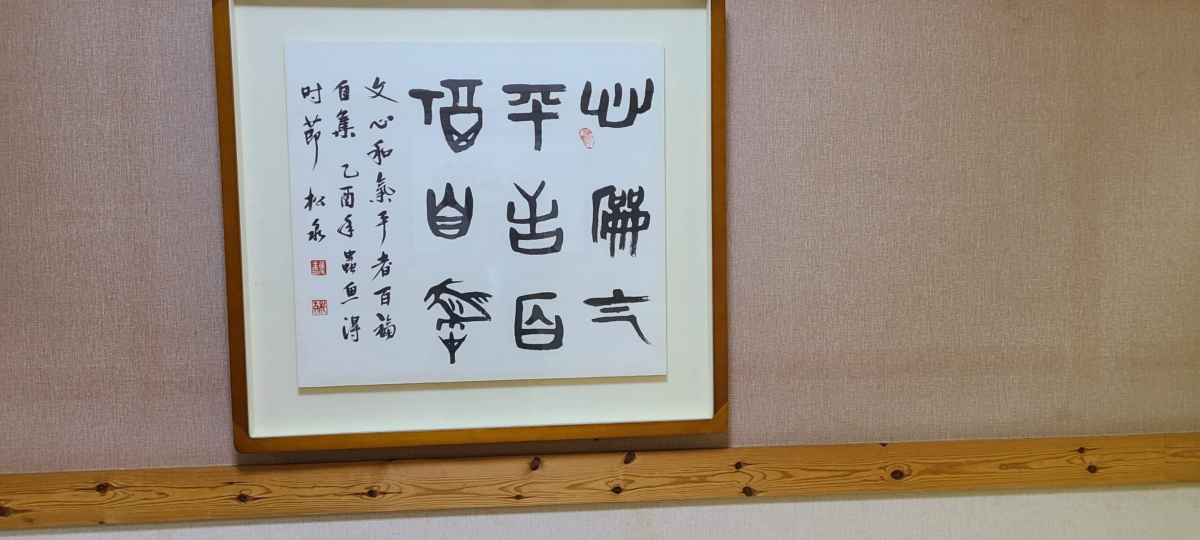 心龢气
平者百
福自集
文心和氣平者百福
自集 乙酉年蟲魚得
时節 松泉